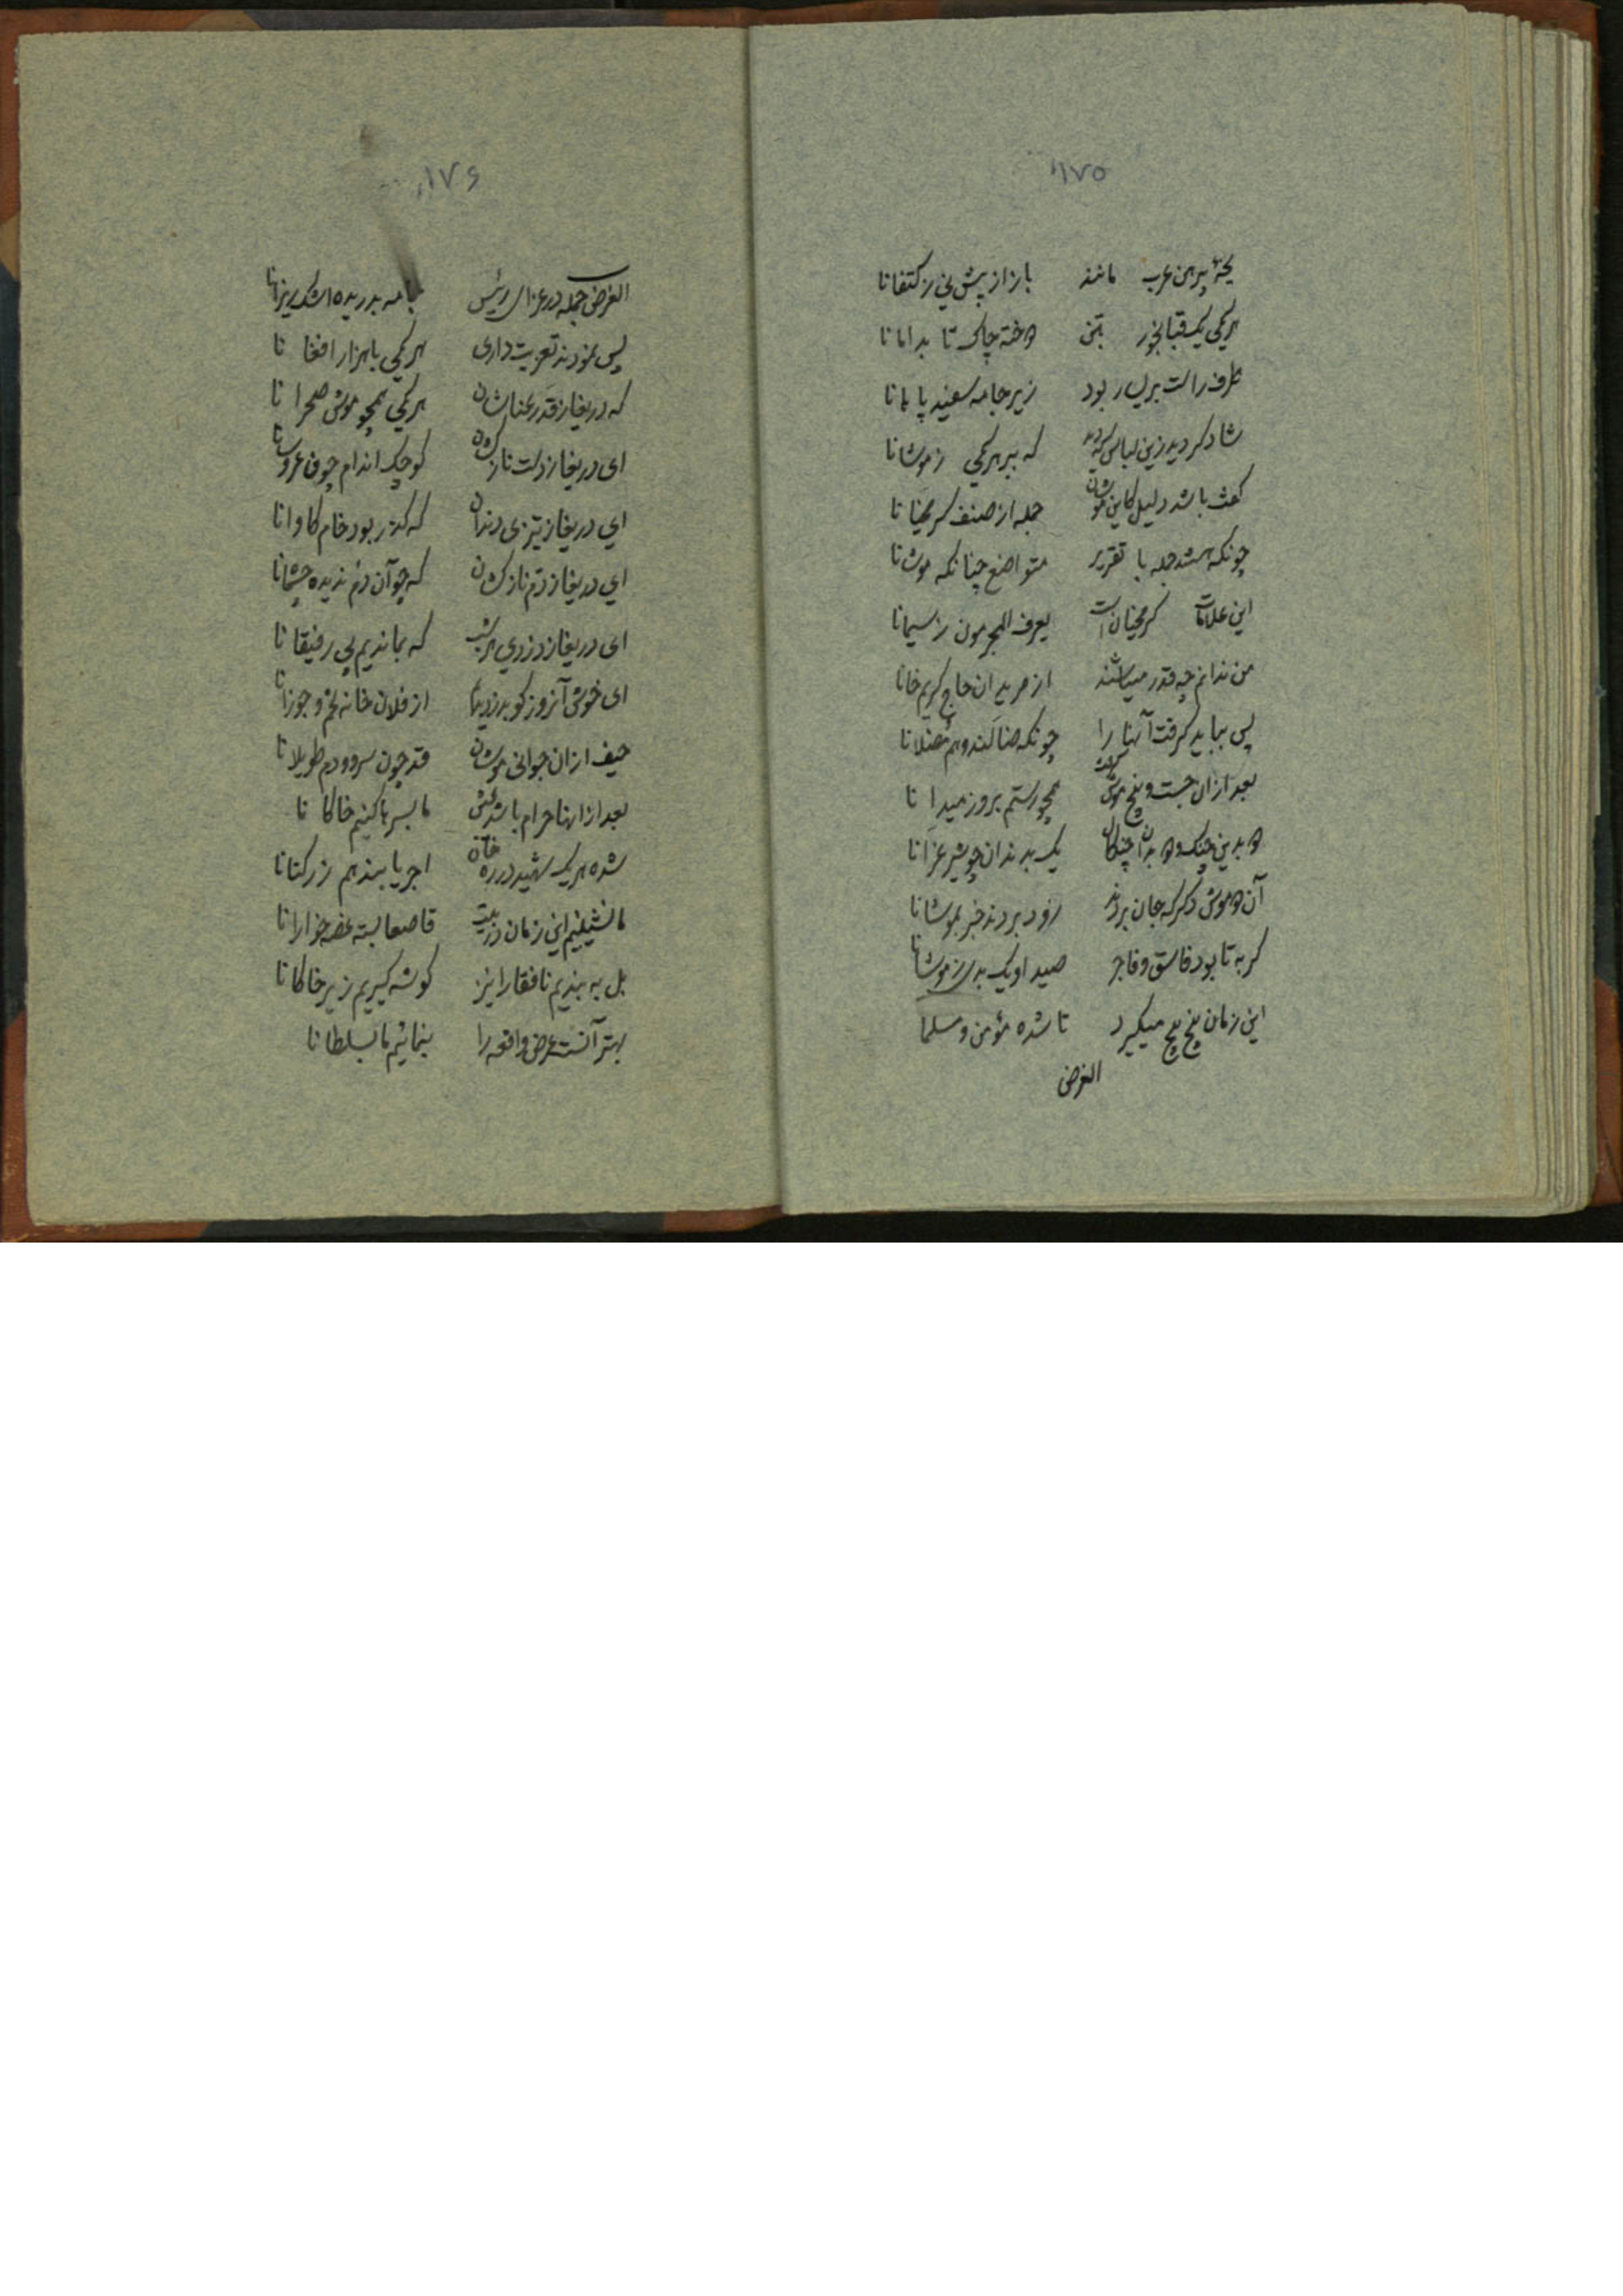 ۱۷۵
یخهٔ پیرهن عرب مانند باز از پیش نی ز کتفانا
هر یکی یک قبا بتن تا بدامانا
طرف راست بر یسار بود زیر جامه سفید پامانا
شاد کردید زین لباس که ببر هر یکی ز موشانا
کفت باشد دلیل کاین موشان جمله از صنف کریمخیانا
چونکه هستند جمله با تقریر متواضع چنانکه موشانا
این علامات کریمخیان است یعرف المجرمون ز سیمانا
من ندانم چه قدر میباشند از مریدان حاج کریم خانا
پس بباید کرفت آنها را چونکه ضالند و هم مضلانا
بعد از ان جست و پنج موش کرفت همچو رستم بروز میدانا
دو بدین چنک و دو بدان چنکال یک بدندان چو شیر غرّانا
آن دو موش دکر که جان بردند زود بردند خبر بموشانا
کربه تا بود فاسق و فاجر صید او یک بدی ز موشانا
این زمان پنج پنج میکیرد تا شده مؤمن و مسلما
الغرض
۱۷۶
الغرض جمله در عزای رئیس جامه بدریده اشک ریزانا
پس نمودند تعزیت داری هر یکی با هزار افغانا
که دریغا ز قد رعناشان هر یکی همچو موش صحرانا
ای دریغا ز دست نازکشان کوچک اندام چون عروسانا
ای دریغا ز تیزی دندان که کذر بود خام کاوانا
ای دریغا ز دم نازکشان که چو آن دم ندیده چشمانا
ای دریغا ز دزدی هر شب که بماندیم بی رفیقانا
ای خوشی آنروز کو بدزدیدیم از فلان خانه تخم و جوزانا
حیف از ان جوانی موشان قد چون سرو و دم طویلانا
بعد از اینها حرام باشد عیش ما بسرها کنیم خاکانا
شده هر یک شهید در ره خانه اجر یابند هم ز رکنانا
ما نشینیم این زمان در بیت قاصعا بسته غصه خوارانا
بل به بندیم نافقا را نیز کوشه کیریم زیر خاکانا
بهتر آنست عرض واقعه را بنمائیم ما بسلطانا